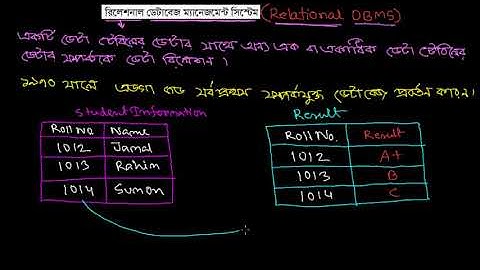 রিলেশনাল ডেটাবেজ ম্যানেজমেন্ট সিস্টেম (Relational DBMS)
একটি ডেটা টেবিলের ডেটার সাথে অন্য এক বা একাধিক ডেটা টেবিলের
ডেটার সম্পর্ককে ডেটা রিলেশন।
১৯৭০ সালে এডগার কড সর্বপ্রথম সম্পর্কযুক্ত ডেটাবেজ প্রবর্তন করেন।
Student Information
Result
Roll No Name
Roll No. Result
1012 Jamal
1012 A+
1013 Rahim
1013 B
1014 Sumon
1014 C